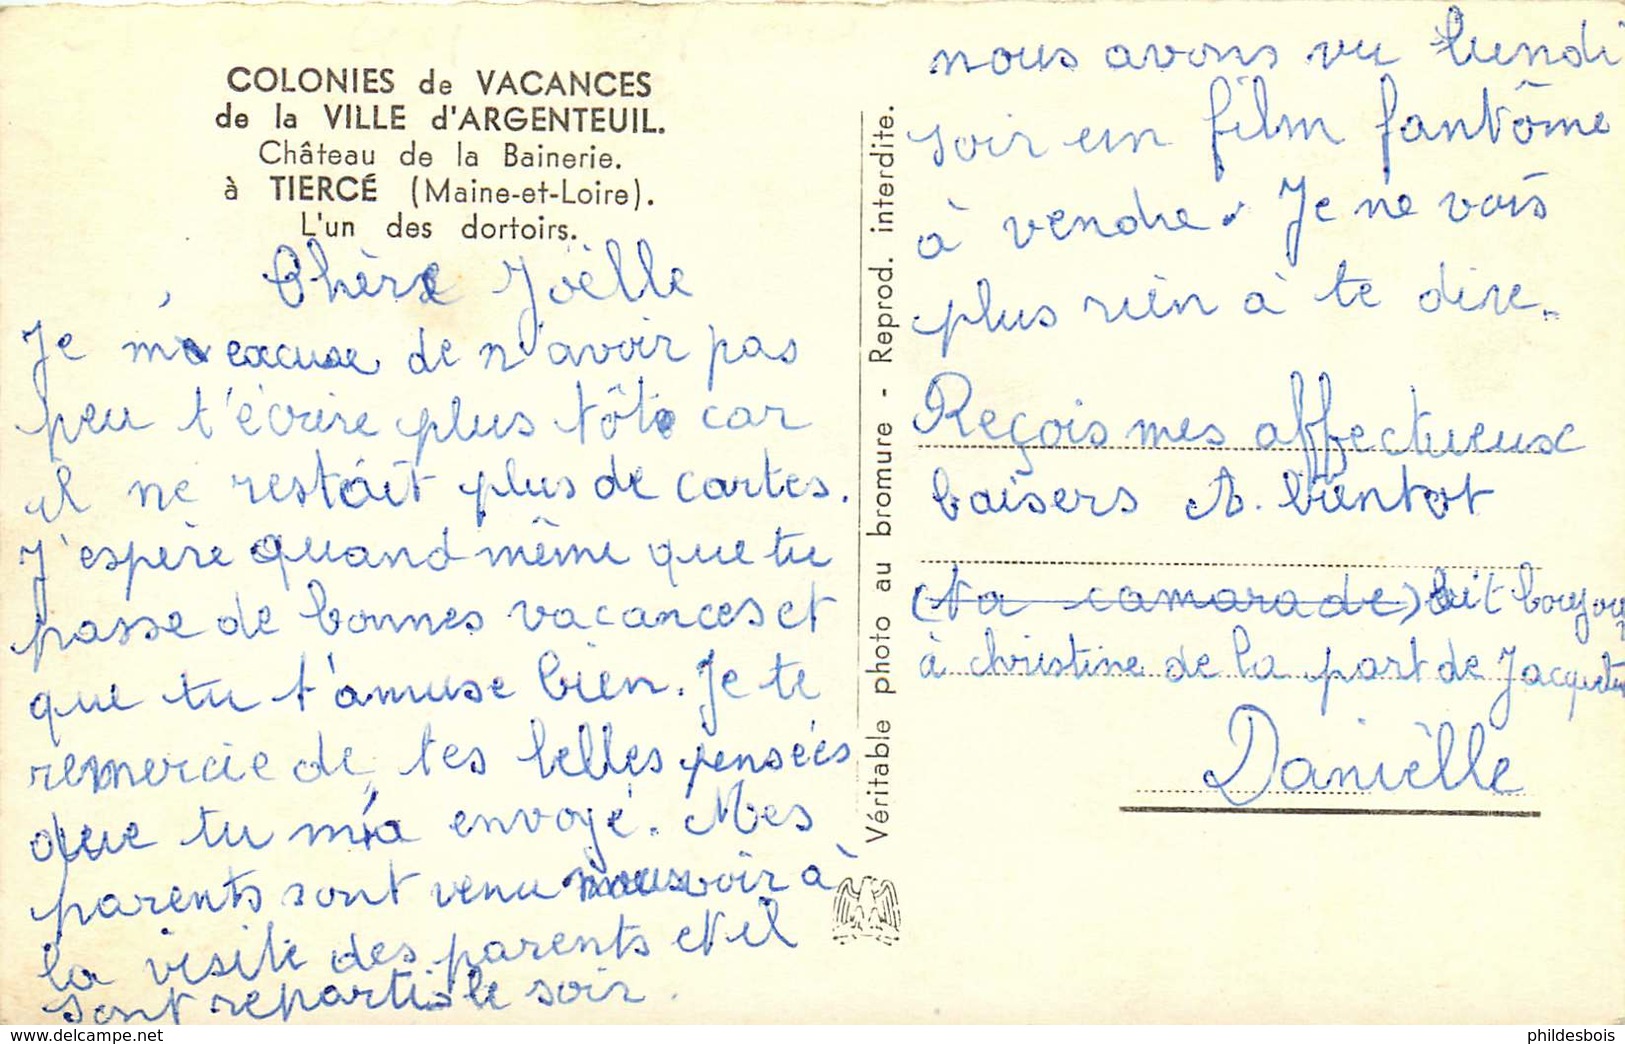 COLONIES de VACANCES
de la VILLE d'ARGENTEUIL.
Château de la Bainerie.
à TIERCÉ (Maine-et-Loire).
L'un des dortoirs.
Chère Joëlle
Je m'excuse de n'avoir pas
peu t'écrire plus tôt car
il ne restait plus de cartes.
J'espère quand même que tu
passe de bonnes vacances et
que tu t'amuse bien. Je te
remercie de tes belles pensées
que tu m'a envoyé. Mes
parents sont venu nous voir à
la visite des parents et il
sont repartis le soir.
Véritable photo au bromure - Reprod. interdite.
nous avons vu lundi
soir un film fantôme
à vendre. Je ne vois
plus rien à te dire.
Reçois mes affectueux
baisers A. bientot
(ta camarade) dit bonjour
à christine de la part de Jacqueline
Danièlle
phildesbois